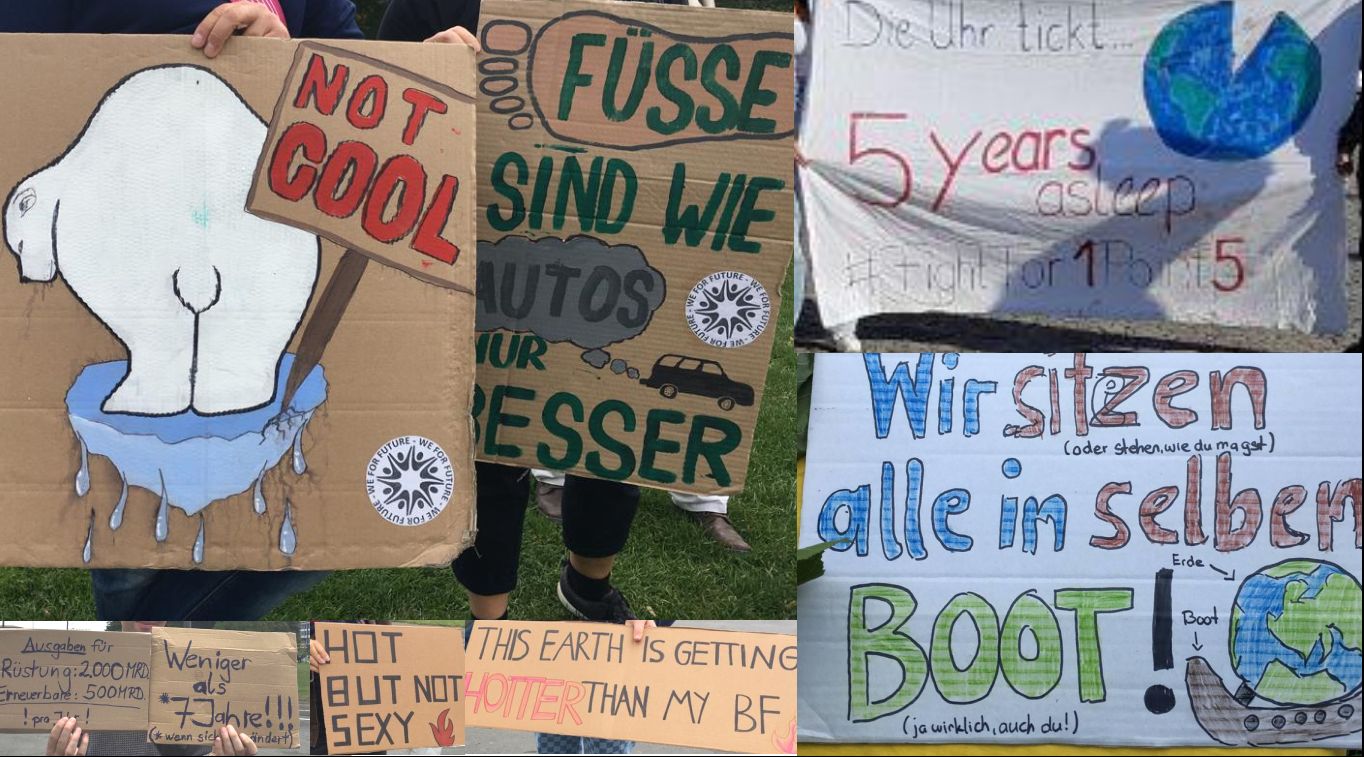 NOT
COOL
WE FOR FUTURE - WE FOR FUTURE - WE FOR FUTURE -
FÜSSE
SIND WIE
AUTOS
NUR
BESSER
WE FOR FUTURE - WE FOR FUTURE - WE FOR FUTURE -
Die Uhr tickt...
5 years
asleep
#FightFor1Point5
Wir sitzen
(oder stehen, wie du magst)
alle in selben
Erde
BOOT!
Boot
(ja wirklich, auch du!)
Ausgaben für
Rüstung: 2.000 MRD.
Erneuerbare: 500 MRD.
! pro
Weniger
als
*7 Jahre!!!
(*wenn sich
HOT
BUT NOT
SEXY
THIS EARTH IS GETTING
HOTTER THAN MY BF